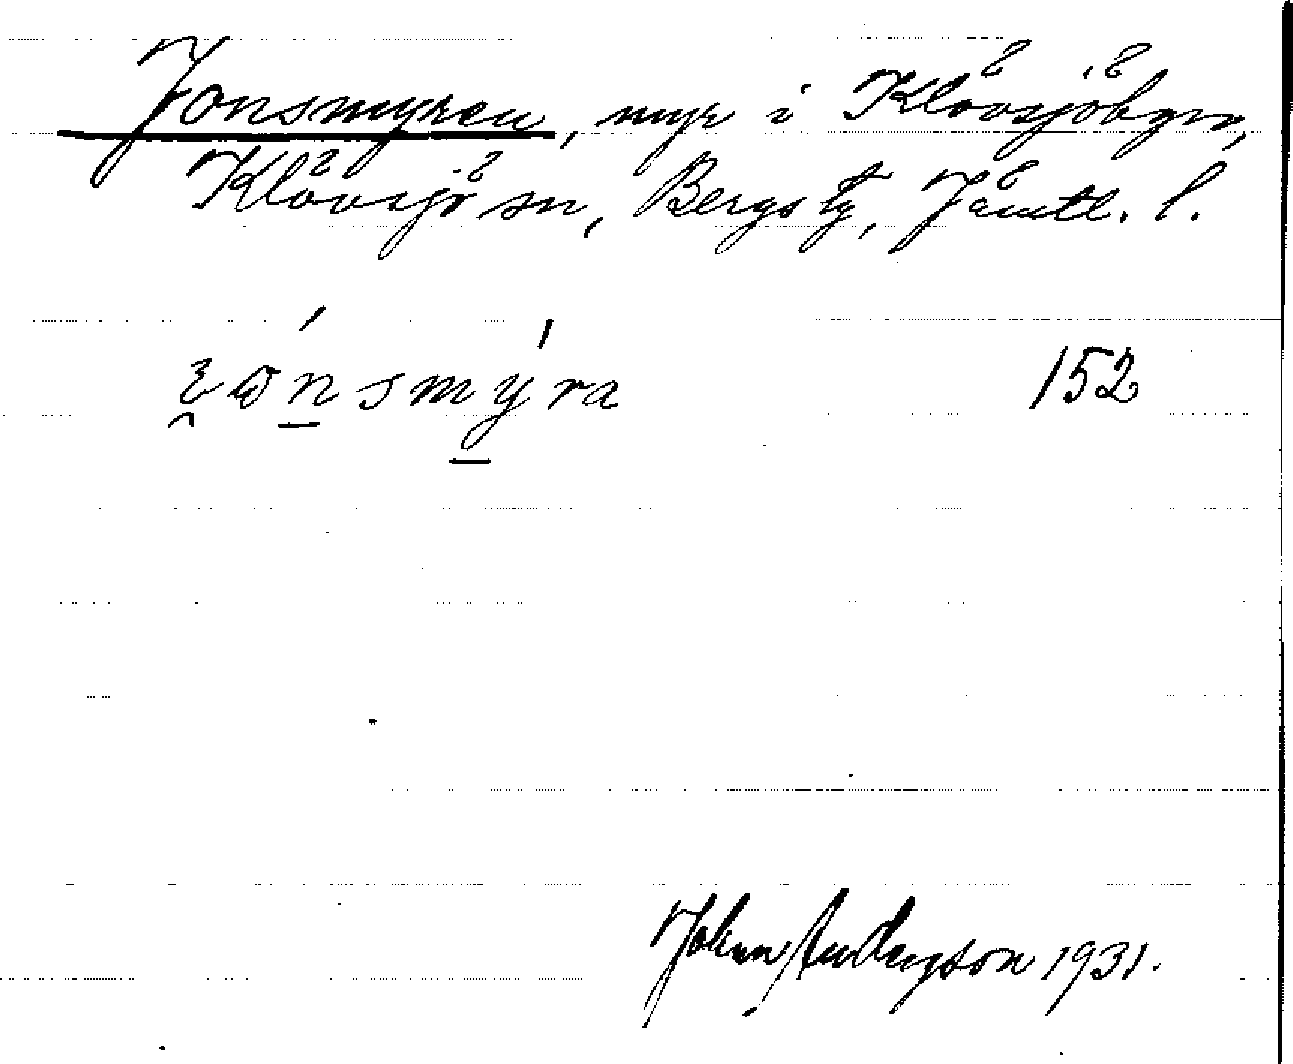 Jonsmyren, myr i Klövsjöbyn,
Klövsjö sn, Bergs tg, Jämtl. l.
152
Johan Anderzson 1931.